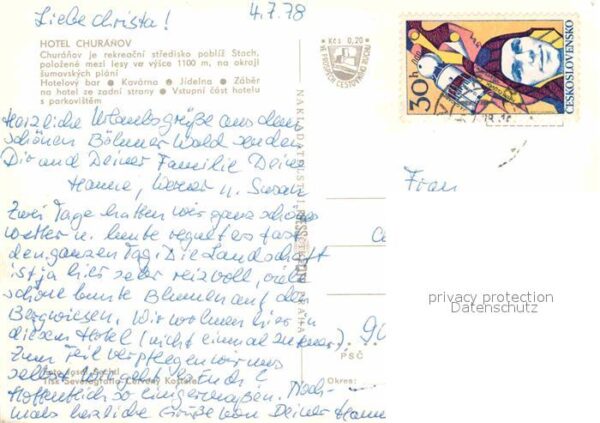 Liebe Christa! 4.7.78
HOTEL CHURÁŇOV
Churáňov je rekreační středisko poblíž Stach,
položené mezi lesy ve výšce 1100 m, na okraji
šumavských plání
Hotelový bar • Kavárna • Jídelna • Záběr
na hotel ze zadní strany • Vstupní část hotelu
s parkovištěm
Kčs 0,20
VE PROSPĚCH CESTOVNÍHO RUCHU
30 h
ČESKOSLOVENSKO
Herzliche Urlaubsgrüße aus dem
schönen Böhmer Wald senden
Dir und Deiner Familie Deine
Hanne, Werner u. Susan
Zwei Tage hatten wir ganz schönes
Wetter u. heute regnet es fast
den ganzen Tag. Die Landschaft
ist ja hier sehr reizvoll, viele
schöne bunte Blumen auf den
Bergwiesen. Wir wohnen hier in
diesem Hotel (nicht einmal teuer).
Zum Teil verpflegen wir uns
selbst. Wie geht es Euch?
Hoffentlich so einigermaßen. Noch-
mals herzliche Grüße von Deiner Hanne
Frau
NAKLADATELSTVÍ
PRAHA
PSČ
Foto Josef
Tisk Severografia Červený Kostelec
Okres:
privacy protection
Datenschutz